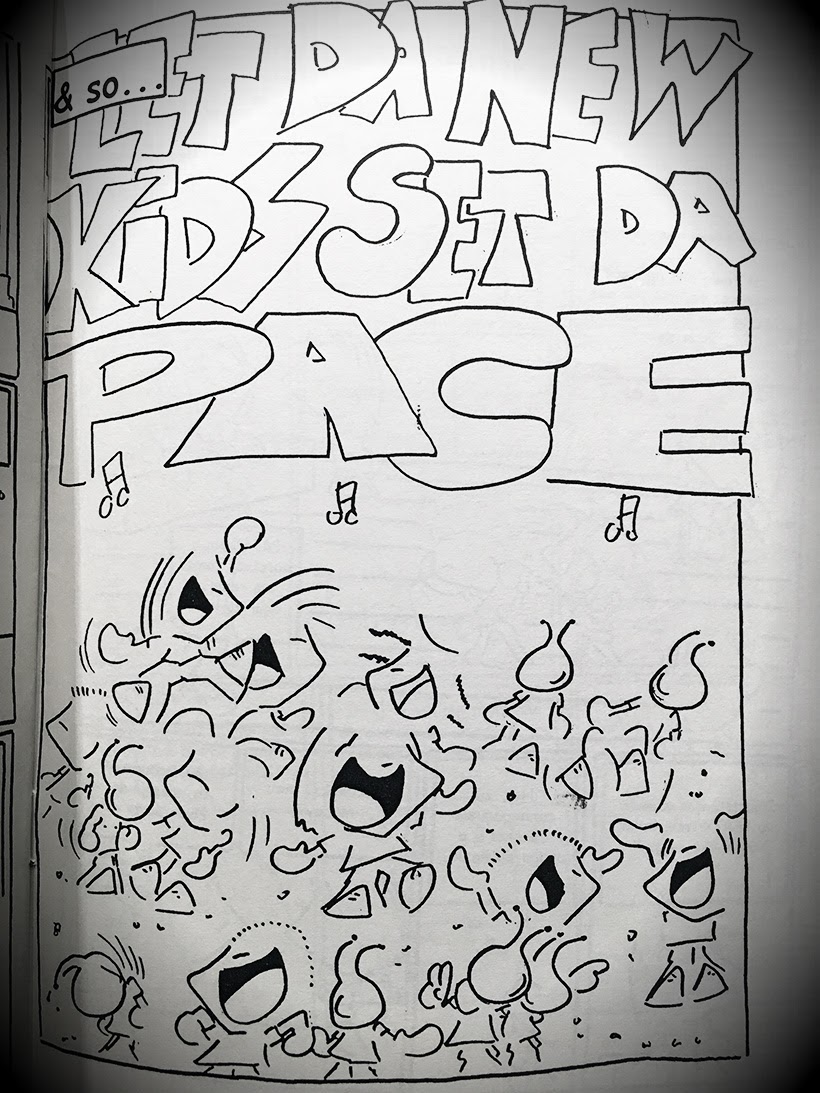 & so...
LET DA NEW
KiDS SET DA
PACE